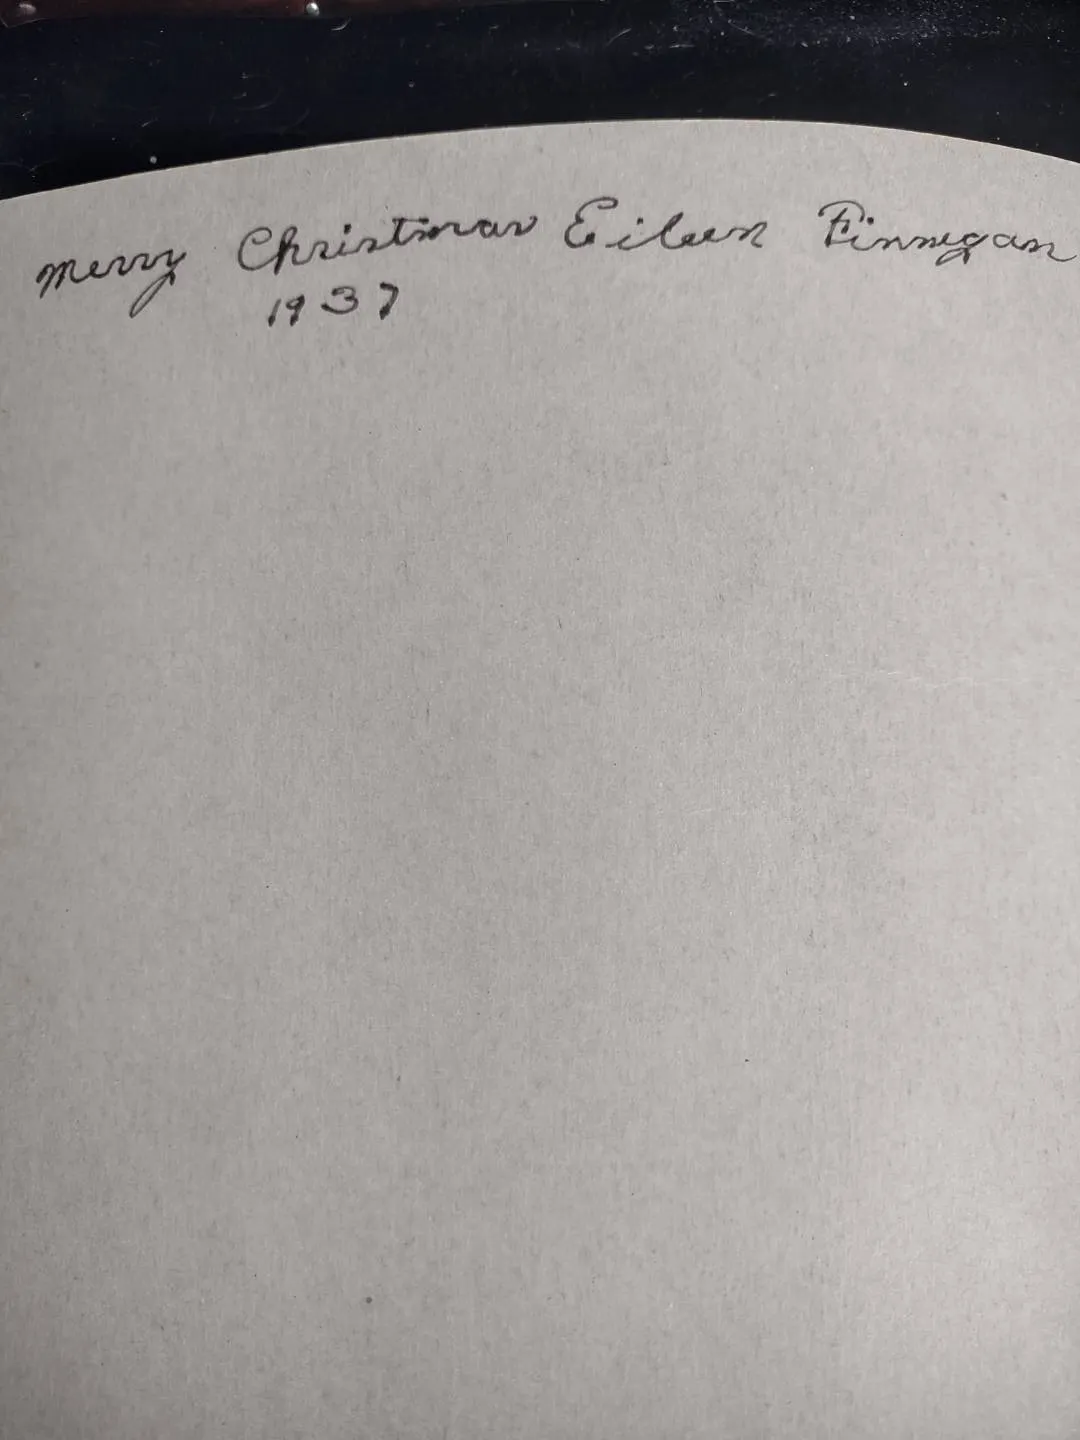 Merry Christmas Eileen Finnegan
1937